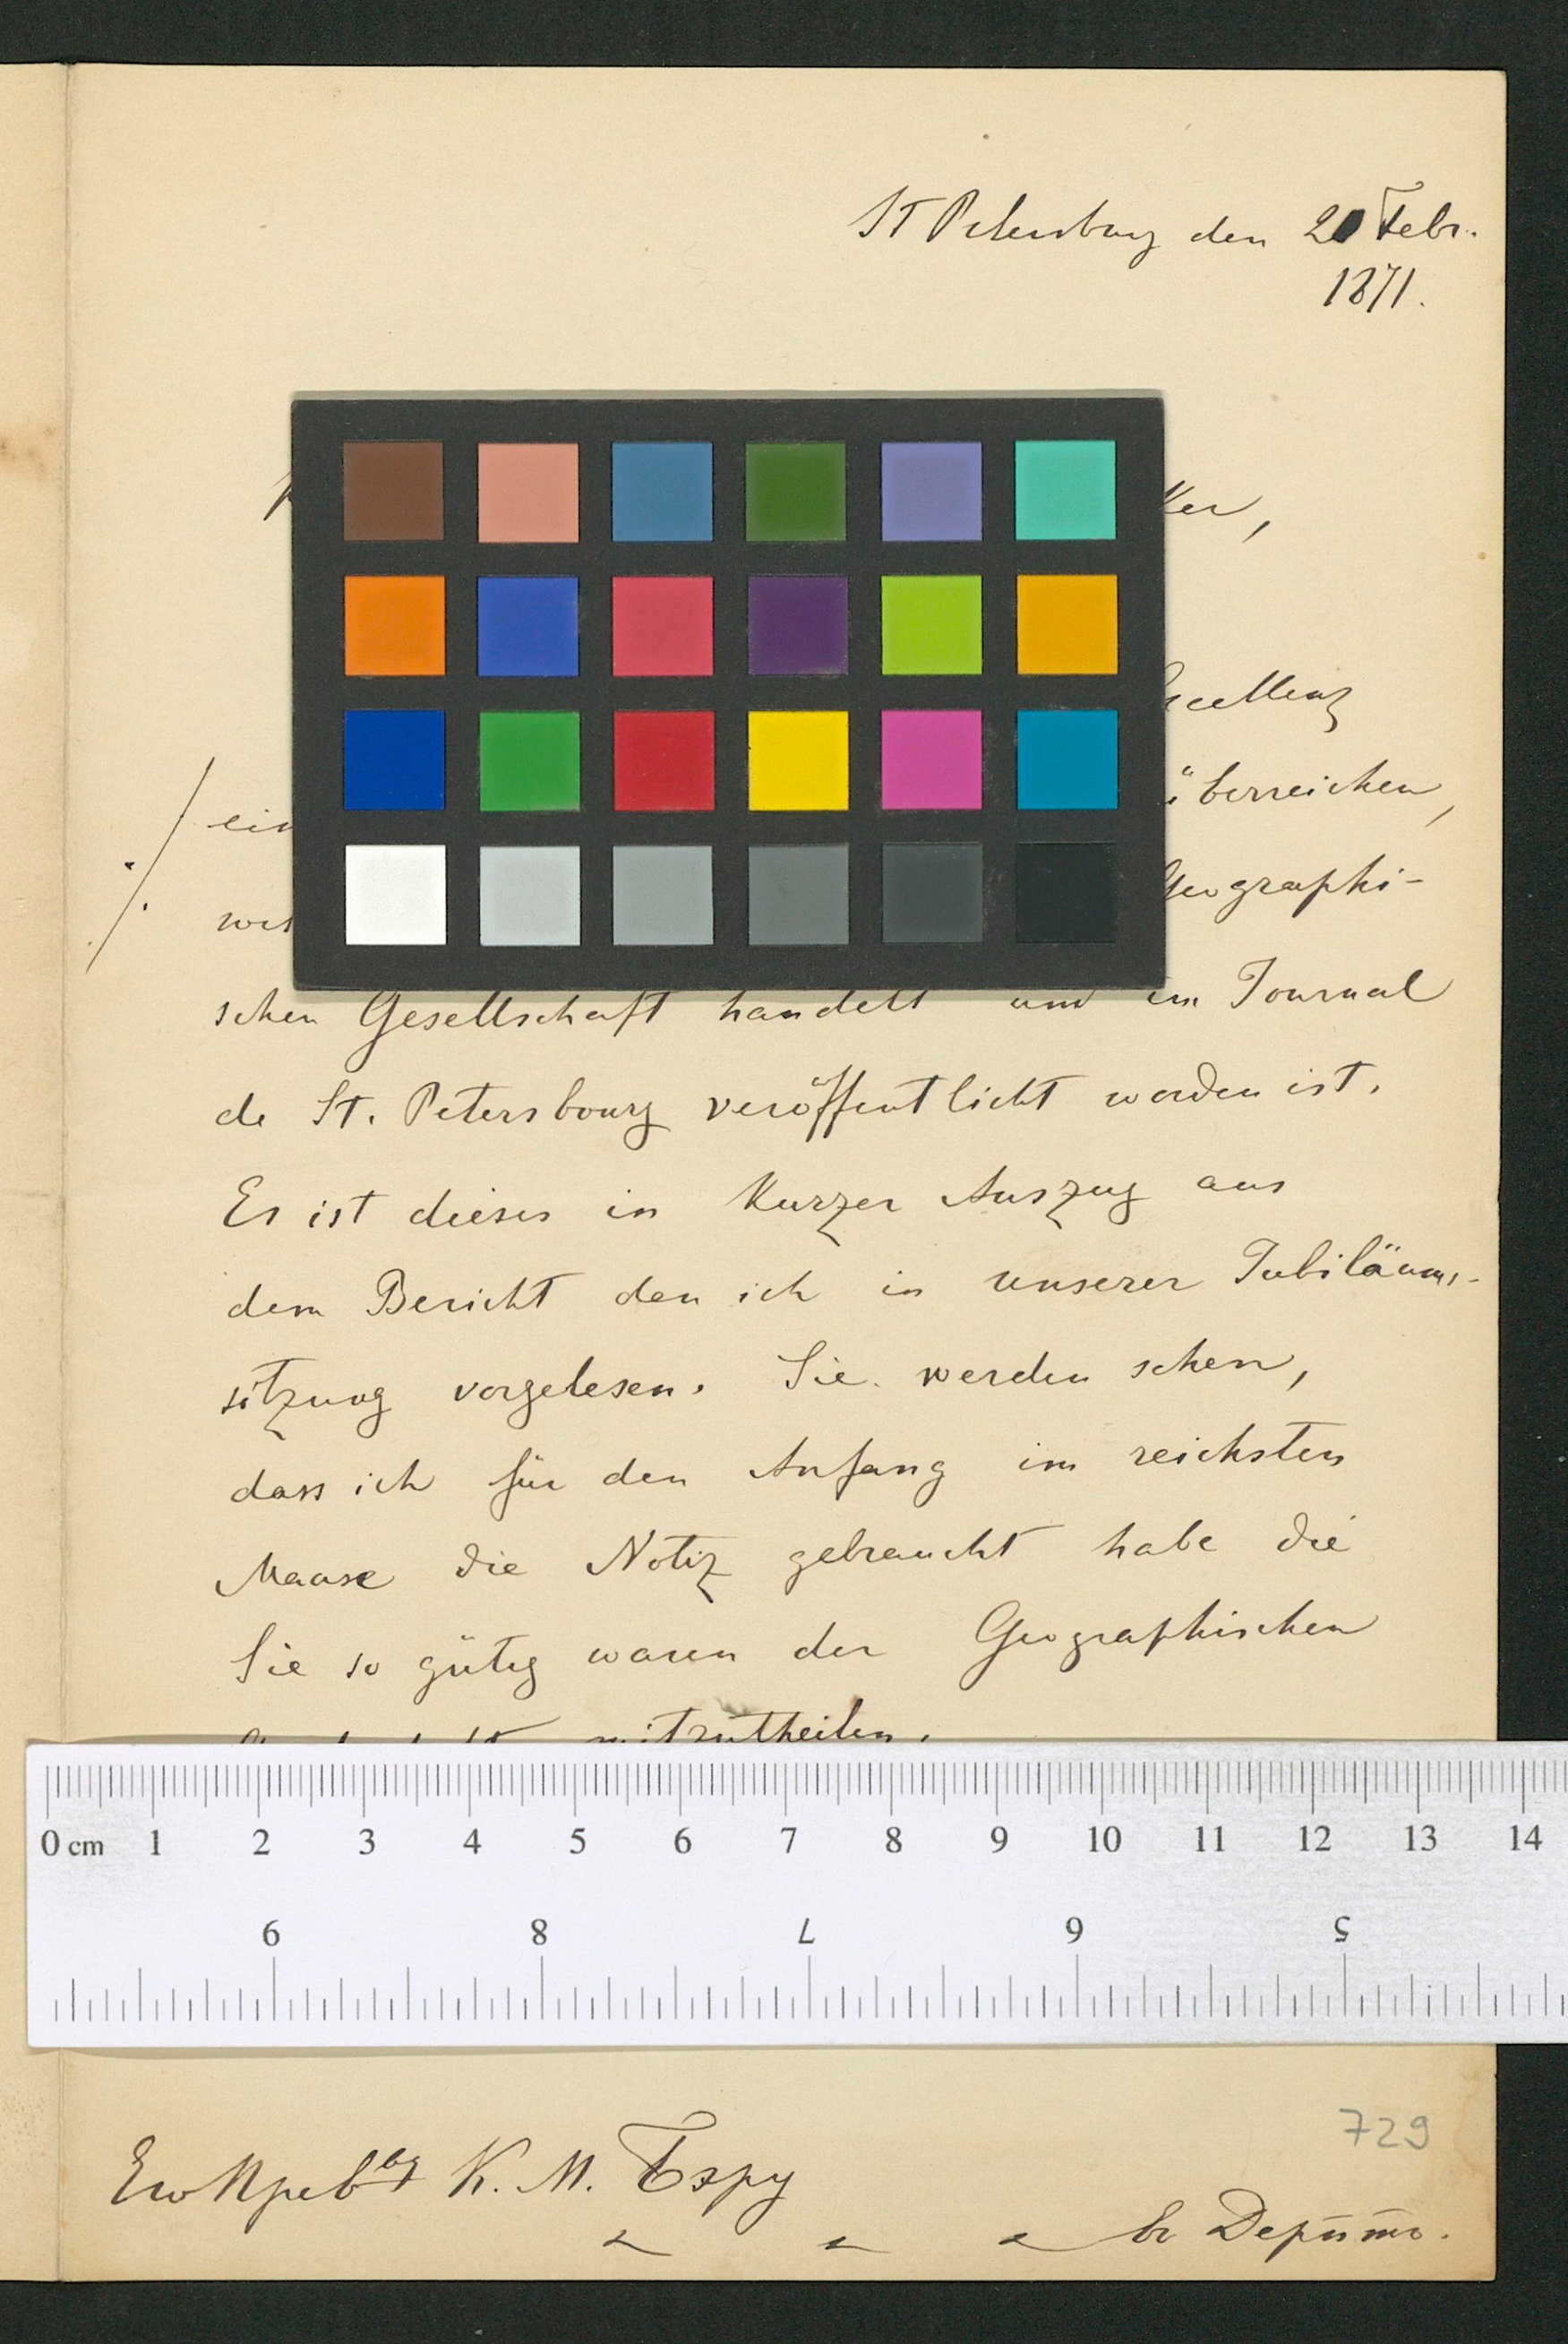 St Petersburg den 20 Febr.
1871.
ker,
Excellenz
ein überreichen,
Geographi-
schen Gesellschaft handelt und im Journal
de St. Petersbourg veröffentlicht worden ist.
Es ist dieses in kurzer Auszug aus
dem Bericht den ich in unserer Jubiläums-
sitzung vorgelesen. Sie werden sehen,
dass ich für den Anfang im reichsten
Maase die Notiz gebraucht habe die
Sie so gütig waren der Geographischen
mitzutheilen.
0 cm 1 2 3 4 5 6 7 8 9 10 11 12 13 14
9 8 7 6 5
729
Ево Прев⁽ᵇʸ⁾ К. М. Бэру
въ Дерптѣ.